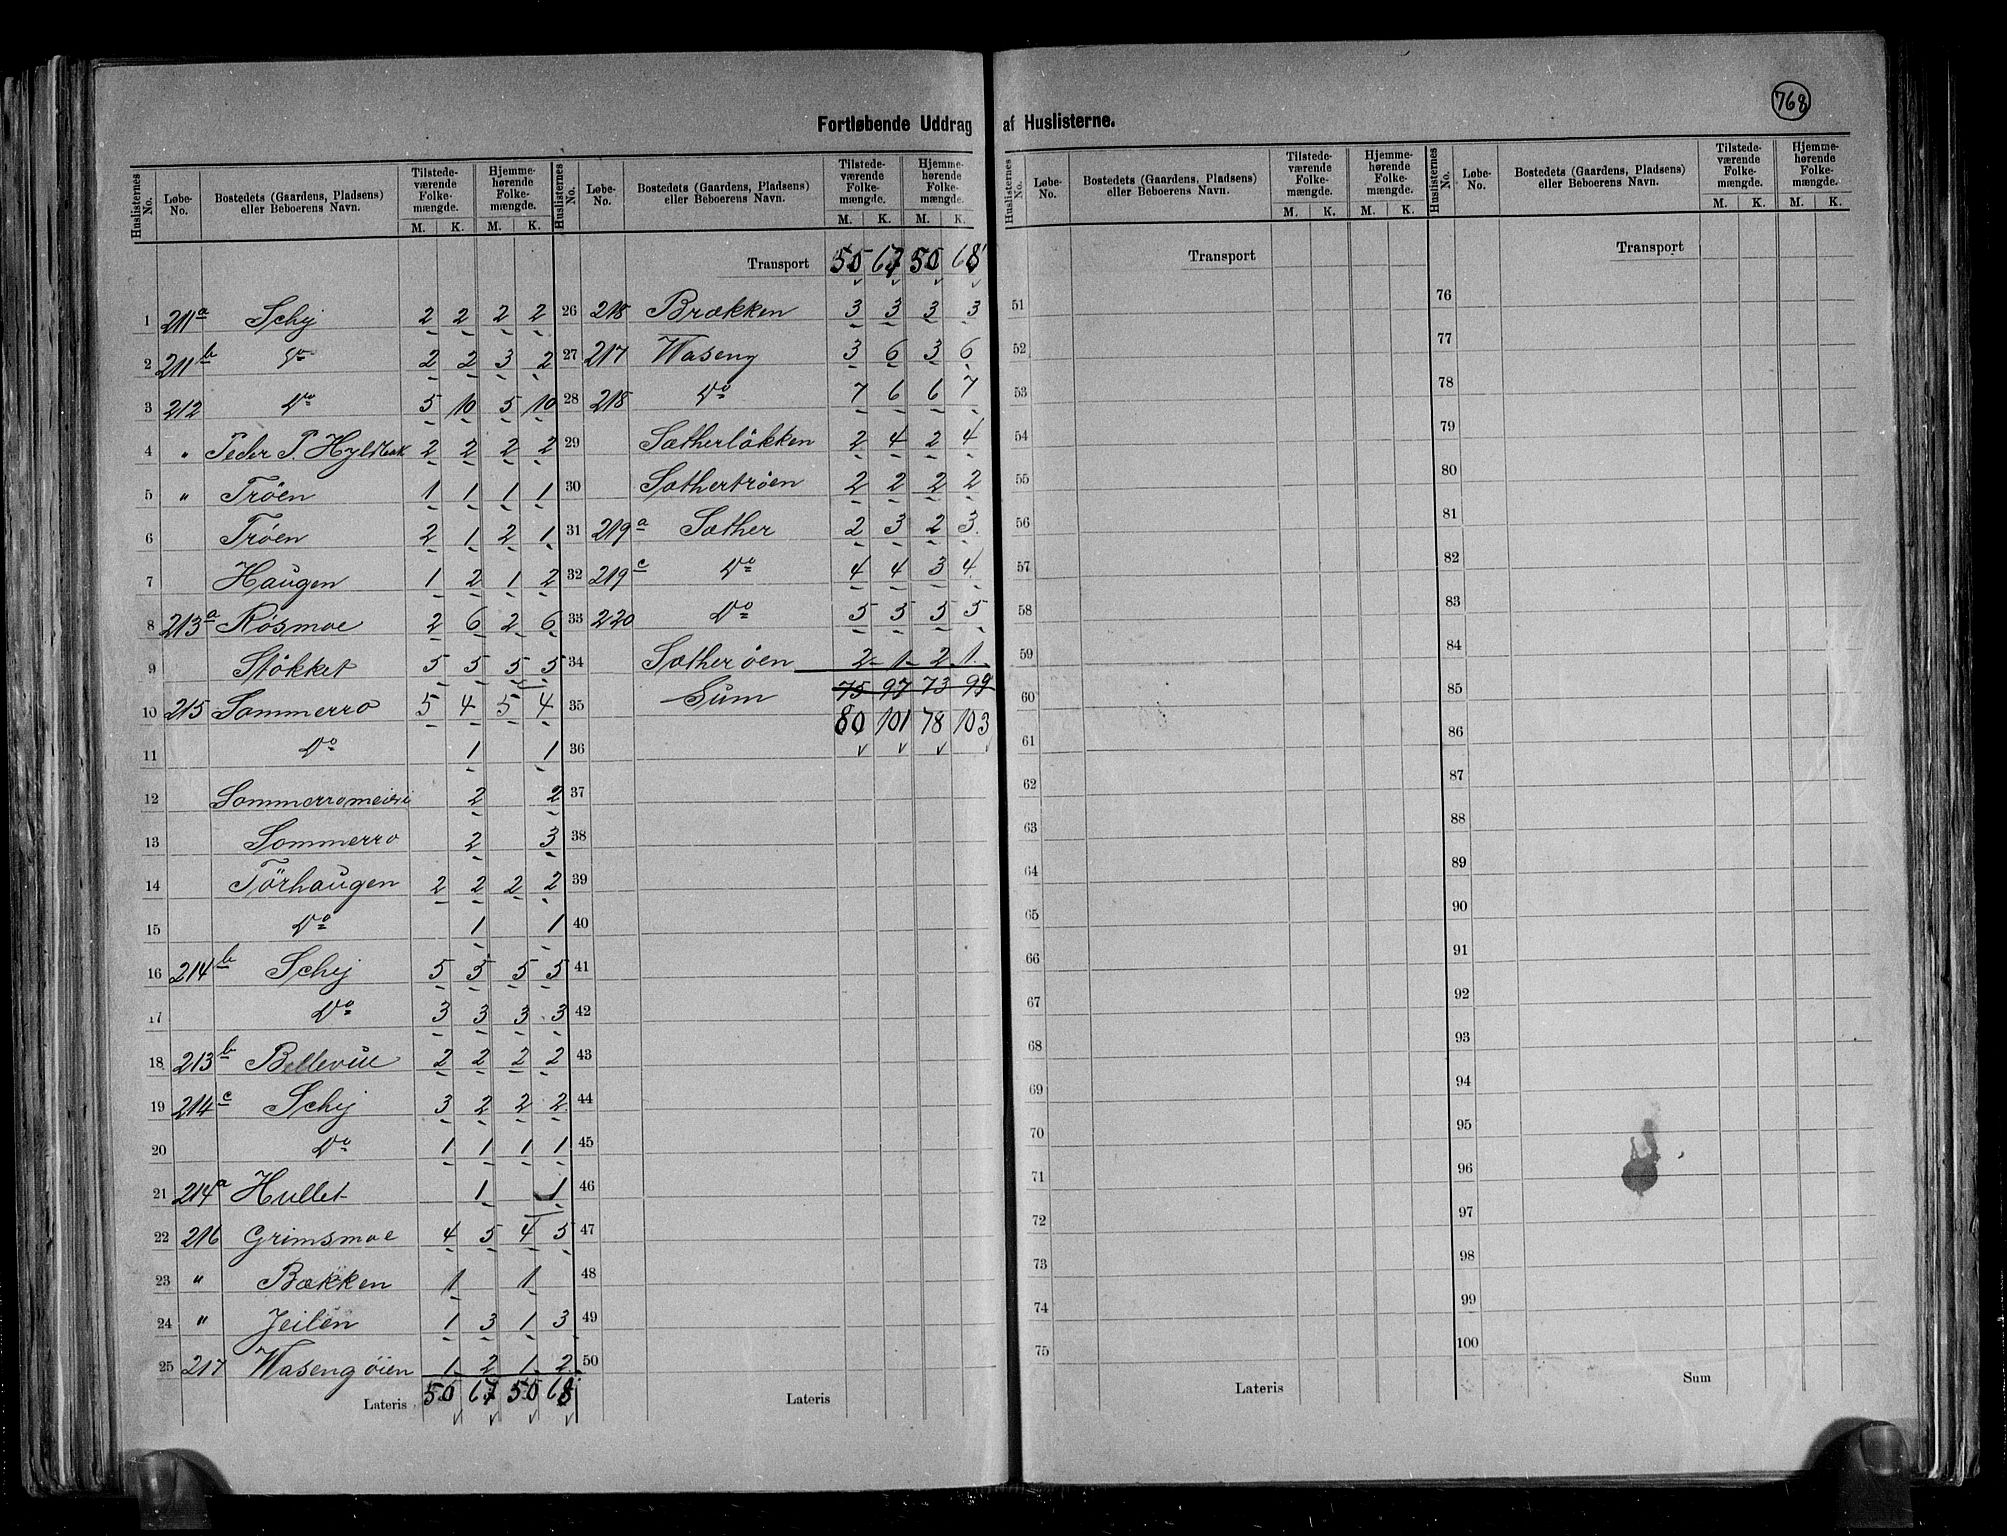 768
Fortløbende Uddrag af Huslisterne.
Huslisternes No. | Løbe-No. | Bostedets (Gaardens, Pladsens) eller Beboerens Navn. | Tilstedeværende Folkemængde. M. K. | Hjemmehørende Folkemængde. M. K.
1 211a Schj 2 2 2 2
2 211b Do 2 2 3 2
3 212 Do 5 10 5 10
4 " Peder P. Hyldbak 2 2 2 2
5 " Trøen 1 1 1 1
6 Trøen 2 1 2 1
7 Haugen 1 2 1 2
8 213a Røsmoe 2 6 2 6
9 Støkket 5 5 5 5
10 215 Sommerro 5 4 5 4
11 Do 1 1
12 Sommerromeieri 2 2
13 Sommerro 2 3
14 Törhaugen 2 2 2 2
15 Do 1 1
16 214b Schj 5 5 5 5
17 Do 3 3 3 3
18 213b Bellevue 2 2 2 2
19 214c Schj 3 2 2 2
20 Do 1 1 1 1
21 214a Hullet 1 1
22 216 Grimsmoe 4 5 4 5
23 " Bækken 1 1
24 " Jeilen 1 3 1 3
25 217 Wasengøien 1 2 1 2
Lateris 50 67 50 68
Huslisternes No. | Løbe-No. | Bostedets (Gaardens, Pladsens) eller Beboerens Navn. | Tilstedeværende Folkemængde. M. K. | Hjemmehørende Folkemængde. M. K.
Transport 50 67 50 68
26 218 Brækken 3 3 3 3
27 217 Waseng 3 6 3 6
28 218 Do 7 6 6 7
29 Sætherløkken 2 4 2 4
30 Sæthertrøen 2 2 2 2
31 219a Sæther 2 3 2 3
32 219c Do 4 4 3 4
33 220 Do 5 5 5 5
34 Sætherøen 2 1 2 1
35 Sum 75 97 73 99
80 101 78 103
36
37
38
39
40
41
42
43
44
45
46
47
48
49
50
Lateris
Huslisternes No. | Løbe-No. | Bostedets (Gaardens, Pladsens) eller Beboerens Navn. | Tilstedeværende Folkemængde. M. K. | Hjemmehørende Folkemængde. M. K.
Transport
51
52
53
54
55
56
57
58
59
60
61
62
63
64
65
66
67
68
69
70
71
72
73
74
75
Lateris
Huslisternes No. | Løbe-No. | Bostedets (Gaardens, Pladsens) eller Beboerens Navn. | Tilstedeværende Folkemængde. M. K. | Hjemmehørende Folkemængde. M. K.
Transport
76
77
78
79
80
81
82
83
84
85
86
87
88
89
90
91
92
93
94
95
96
97
98
99
100
Sum